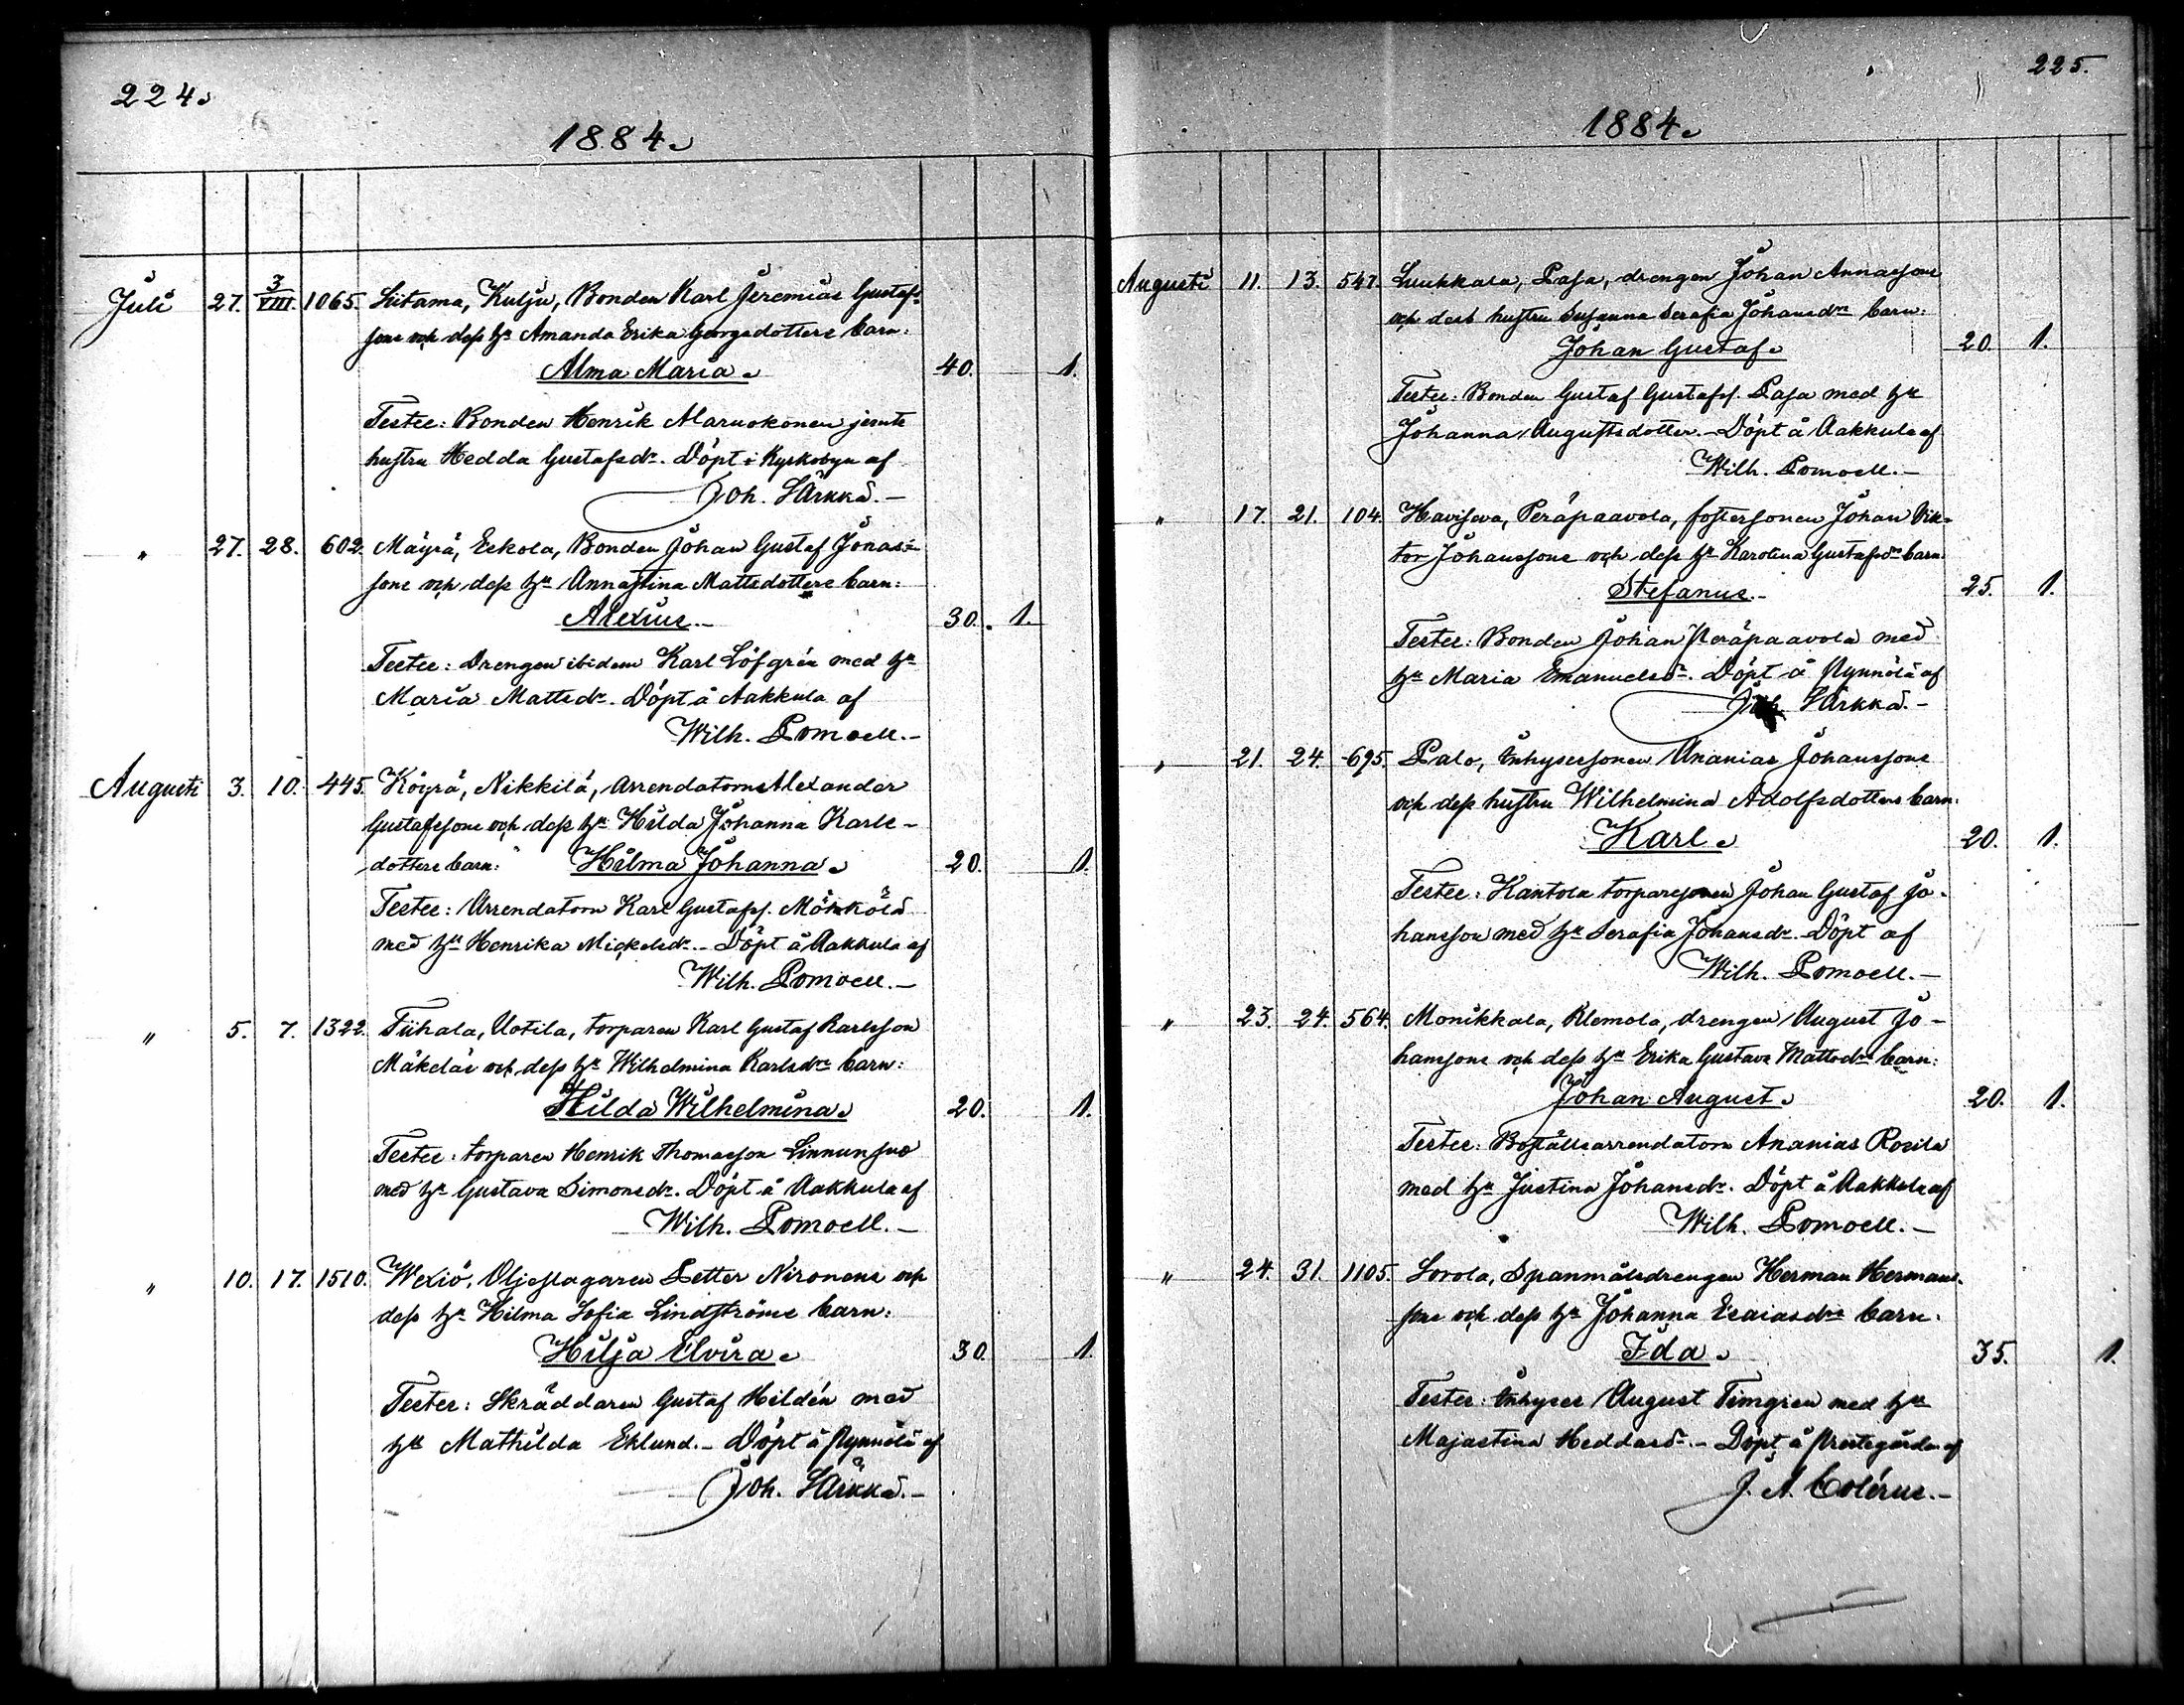 224.
1884.
Juli 27. 3/VIII. 1065. Liitama, Kulju, Bonden Karl Jeremias Gustafs-
sons och dess h:u Amanda Erika Georgsdotters barn:
Alma Maria. 40. 1.
Testes: Bonden Henrik Maruokonen jemte
hustru Hedda Gustafsdr. Döpt i Kyrkobyn af
Joh. Särkkä.-
" 27. 28. 602. Mäyrä, Eekola, Bonden Johan Gustaf Jonas-
sons och dess h:u Annastina Mattsdotters barn:
Alexius.- 30. 1.
Testes: Drengen ibidem Karl Löfgrén med h:u
Maria Mattsdr. Döpt å Aakkula af
Wilh. Pomoell.-
Augusti 3. 10. 445. Köyrä, Nikkilä, Arrendatorn Alexander
Gustafssons och dess h:u Hilda Johanna Karls-
dotters barn: Hilma Johanna. 20. 1.
Testes: Arrendatorn Karl Gustafss. Mörkölä
med h:u Henrika Mickelsdr.- Döpt å Aakkula af
Wilh. Pomoell.-
" 5. 7. 1322. Tiihala, Uotila, torparen Karl Gustaf Karlsson
Mäkeläs och dess h:u Wilhelmina Karlsdrs barn:
Hilda Wilhelmina. 20. 1.
Testes: torparen Henrik Thomasson Linnunsuo
med h:u Gustava Simonsdr. Döpt å Aakkula af
Wilh. Pomoell.-
" 10. 17. 1510. Wexiö, Oljeslagaren Petter Nironens och
dess h:u Hilma Sofia Lindströms barn:
Hilja Elvira. 30. 1.
Testes: Skräddaren Gustaf Heldén med
h:u Mathilda Eklund.- Döpt å Rynnölä af
Joh. Särkkä.-
225.
1884.
Augusti 11. 13. 547. Luukkala, Pasa, drengen Johan Annassons
och dess hustru Susanna Serafia Johansdrs barn:
Johan Gustaf. 20. 1.
Testes: Bonden Gustaf Gustafss. Pasa med h:u
Johanna Augustsdotter.- Döpt å Aakkula af
Wilh. Pomoell.-
" 17. 21. 104. Havisova, Peräpaavola, fostersonen Johan Vik-
tor Johanssons och dess h:u Karolina Gustafsdrs barn
Stefanus.- 25. 1.
Testes: Bonden Johan Peräpaavola med
h:u Maria Emanuelsdr. Döpt å Rynnölä af
Joh. Särkkä.-
" 21. 24. 695. Palo, Inhysessonen Ananias Johanssons
och dess hustru Wilhelmina Adolfsdotters barn.
Karl. 20. 1.
Testes: Kantola torparesonen Johan Gustaf Jo-
hansson med h:u Serafia Johansdr. Döpt af
Wilh. Pomoell.-
" 23. 24. 564. Monikkala, Klemola, drengen August Jo-
hanssons och dess h:u Erika Gustava Mattsdrs barn:
Johan August. 20. 1.
Testes: Boställsarrendatorn Ananias Rosila
med h:u Justina Johansdr. Döpt å Aakkula af
Wilh. Pomoell.-
" 24. 31. 1105. Sorola, Spanmålsdrengen Herman Hermans-
sons och dess h:u Johanna Esaiasdrs barn.
Ida. 35. 1.
Testes: Inhyses August Timgren med h:u
Majastina Heddasdr.- Döpt å Prestegården af
J. A. Colérus.-